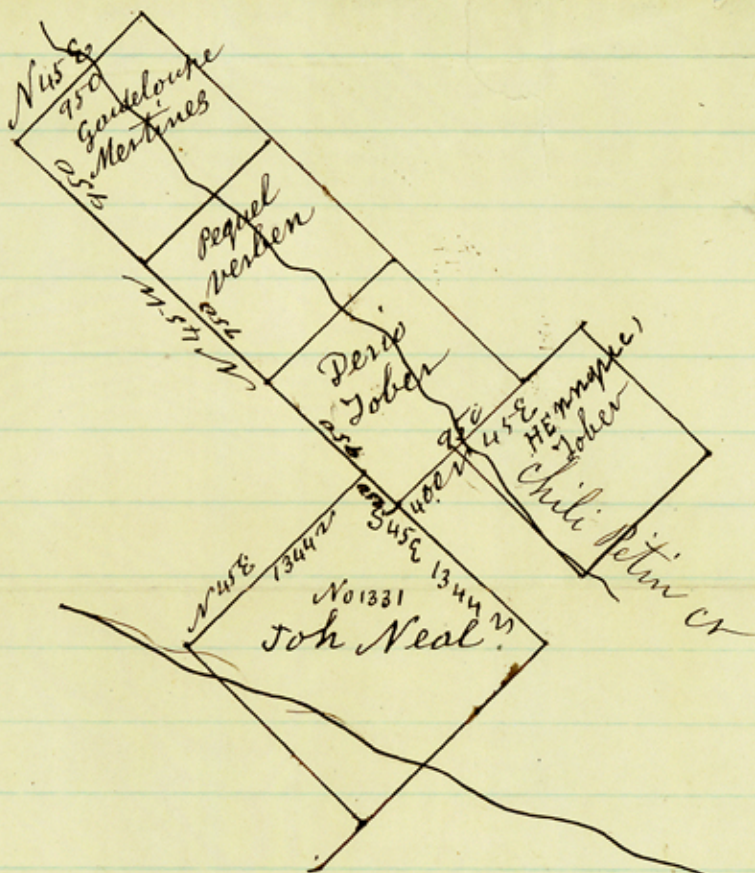 N 45 E
950
Goudeloupe
Mertines
950
Pequel
verben
950
N 45 W
Perio
Tober
950
950
45 E
400 v
Hennapec,
Tober
Chili Pitin cr
N 45 E
1344 v
S 45 E 1344 v
No 1331
Joh Neal.